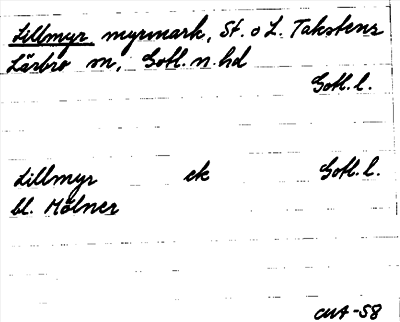 Lillmyr, myrmark, St. o L. Takstens
Lärbro sn, Gotl. n. hd
Gotl. l.
Lillmyr ek Gotl. l.
bl. Mölner
CMA-58